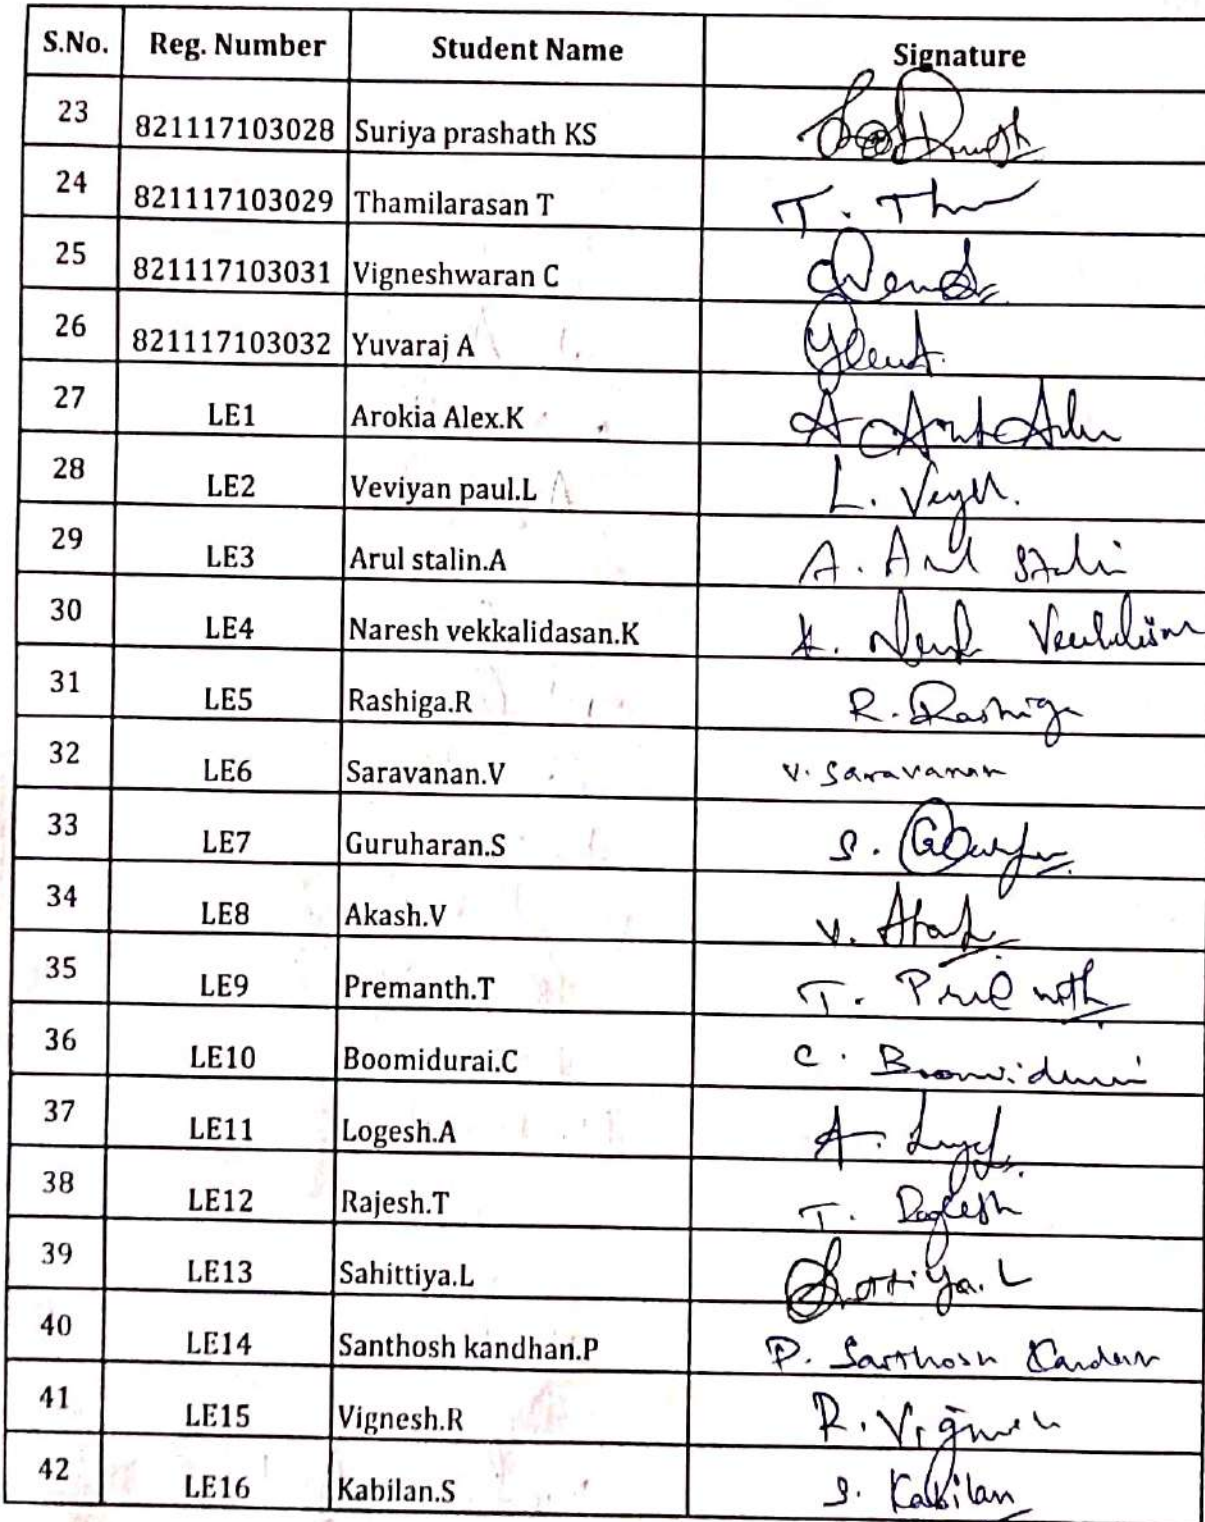 S.No. Reg. Number Student Name Signature
23 821117103028 Suriya prashath KS
24 821117103029 Thamilarasan T T.
25 821117103031 Vigneshwaran C
26 821117103032 Yuvaraj A
27 LE1 Arokia Alex.K A
28 LE2 Veviyan paul.L L.
29 LE3 Arul stalin.A A. Arul Stalin
30 LE4 Naresh vekkalidasan.K K.
31 LE5 Rashiga.R R. Rashiga
32 LE6 Saravanan.V V. Saravanan
33 LE7 Guruharan.S S.
34 LE8 Akash.V V. Akash
35 LE9 Premanth.T T.
36 LE10 Boomidurai.C C. Boomidurai
37 LE11 Logesh.A A.
38 LE12 Rajesh.T T. Rajesh
39 LE13 Sahittiya.L
40 LE14 Santhosh kandhan.P P. Santhosh Kandhan
41 LE15 Vignesh.R R. Vignesh
42 LE16 Kabilan.S S. Kabilan